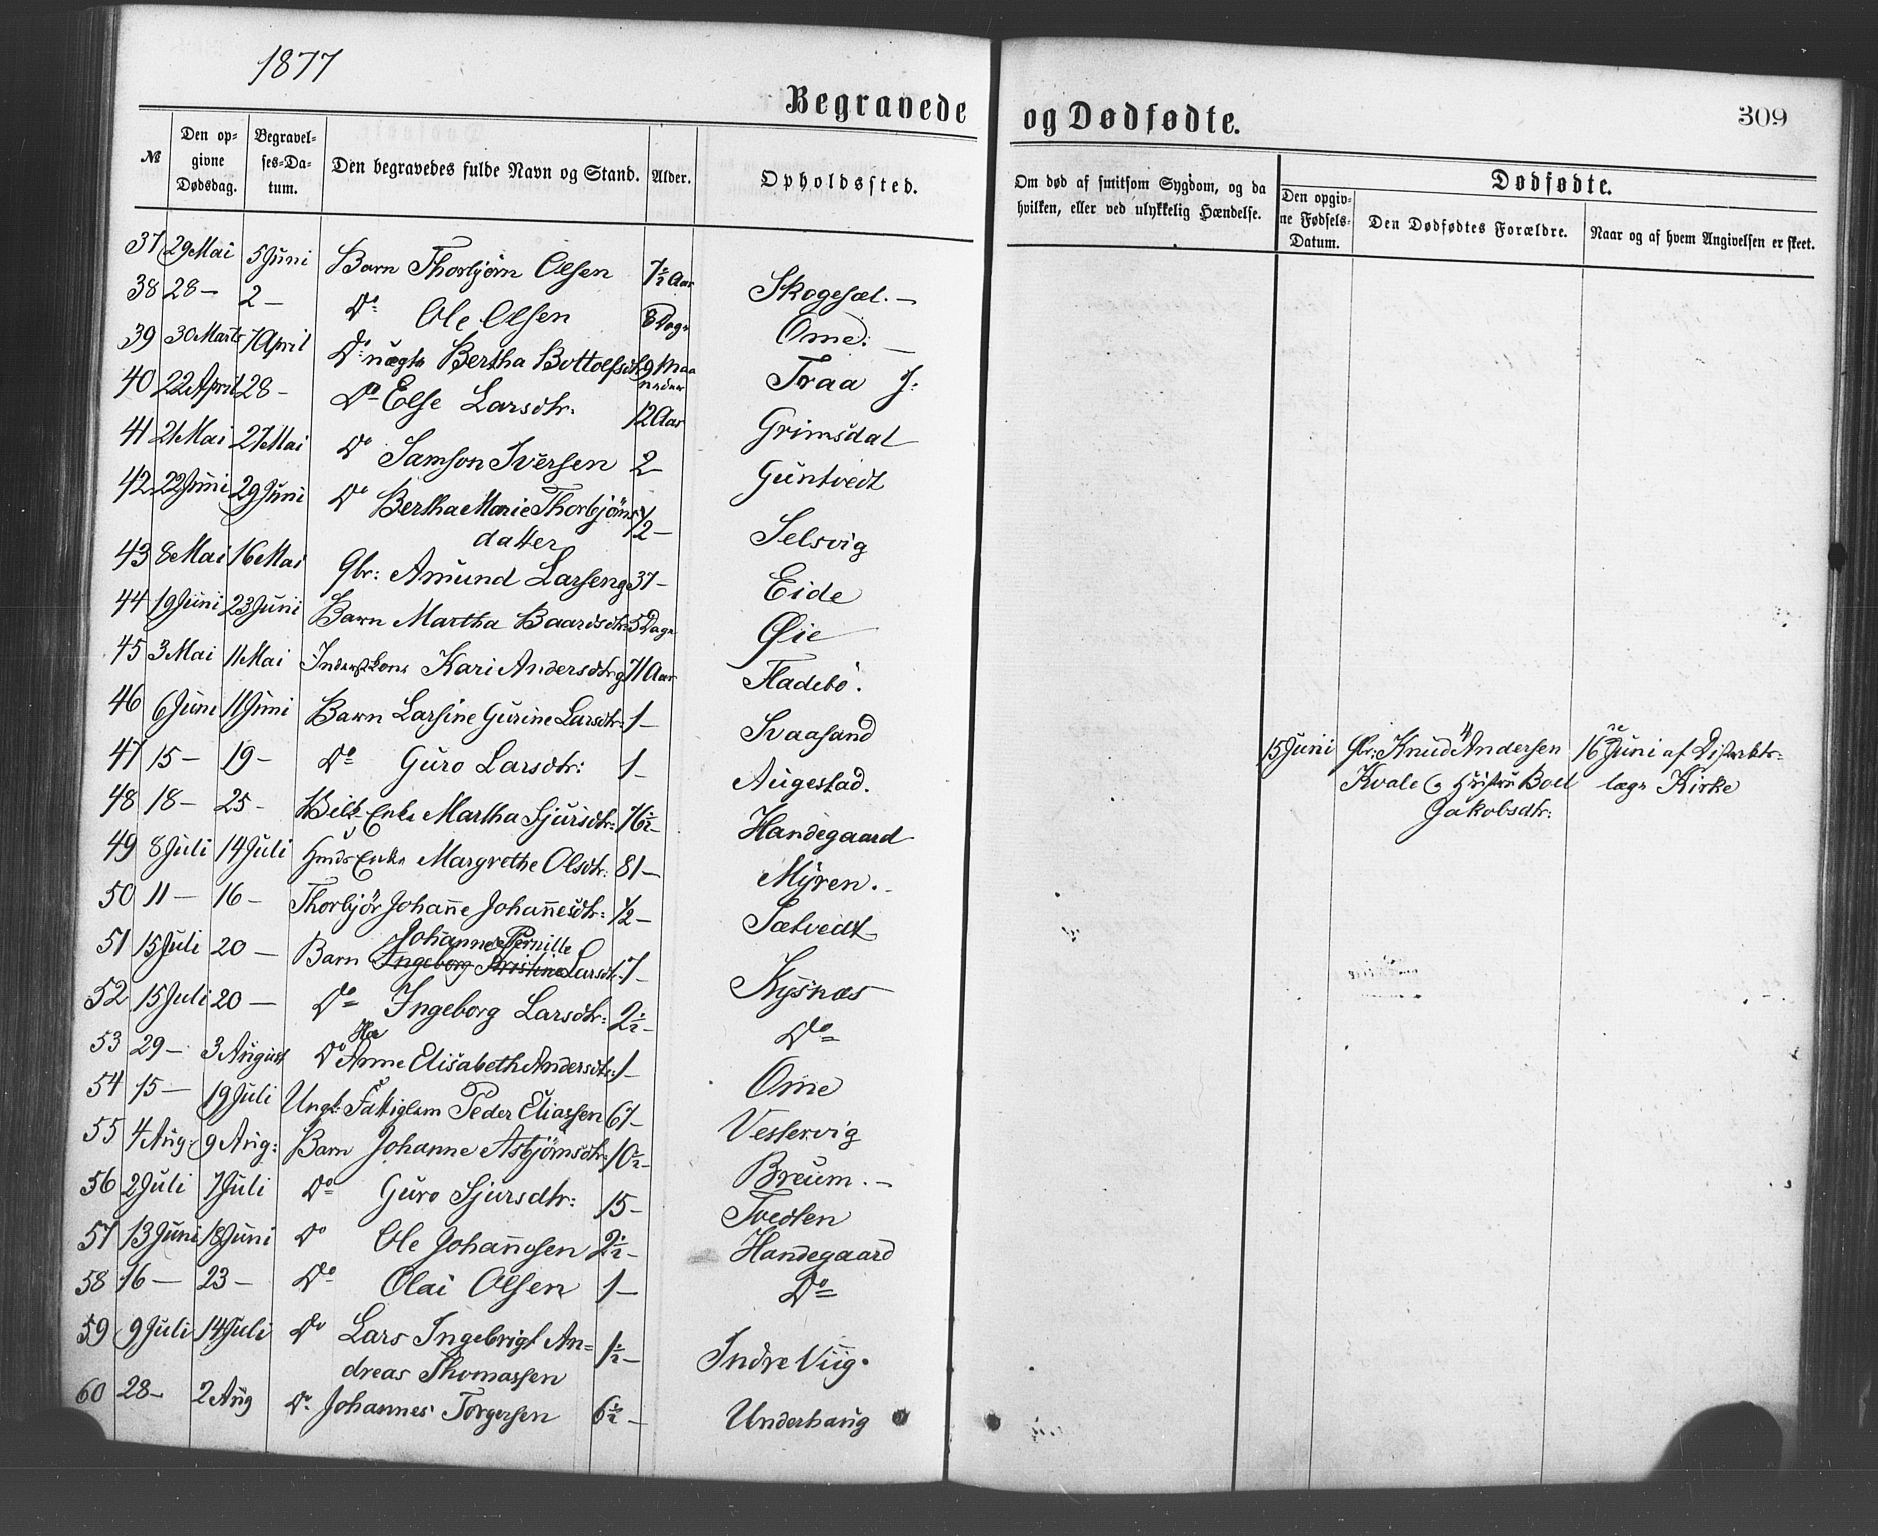 1877
Begravede og Dødfødte.
309
№ Den opgivne Dødsdag. Begravelses-Datum. Den begravedes fulde Navn og Stand. Alder. Opholdssted.
Om død af smitsom Sygdom, og da hvilken, eller ved ulykkelig Hændelse.
Dødfødte.
Den opgivne Fødsels-Datum. Den Dødfødtes Forældre. Naar og af hvem Angivelsen er skeet.
37 29 Mai 5 Juni Barn Thorbjørn Olsen 7½ Aar Skogesæl. —
38 28 — 2 — Do Ole Olsen 8 Dage Ome. —
39 30 Marts 7 April Do uægte Bertha Bottolfsdtr 9 Maaneder Traa J:
40 22 April 28 — Do Else Larsdtr. 12 Aar Grimsdal
41 21 Mai 27 Mai Do Samson Iversen 2 Guntvedt
42 22 Juni 29 Juni Do Bertha Marie Thorbjörns
datter ½ — Selsvig
43 8 Mai 16 Mai Gbr: Amund Larsen g 37 — Eide
44 19 Juni 23 Juni Barn Martha Baardsdtr: 5 Dage Øie
45 3 Mai 11 Mai Kari Andersdtr g 71 Aar Fladebö.
46 6 Juni 11 Juni Barn Larsine Gurine Larsdtr: 1 — Svaasand
47 15 — 19 — Do Guro Larsdtr: 1 — Augestad.
48 18 — 25 — Enke Martha Sjursdtr: 76½ — Handegaard
49 8 Juli 14 Juli Hmds Enke Margrethe Olsdtr: 81 — Myren. —
50 11 — 16 — Thorbjör Johanne Johannesdtr: ½ — Sætvedt
Johanne Pernille
51 15 Juli 20 — Barn Ingeborg Kristine Larsdtr. 7 — Kysnæs
52 15 Juli 20 — Do Ingeborg Larsdtr: 2½ — Do
53 29 — 3 August Do Anne Elisabeth Andersdtr: 1 — Ome
54 15 — 19 Juli Ungk: Fattiglem Peder Eliassen 67 — Vestervig
55 4 Aug: 9 Aug: Barn Johanne Asbjörnsdtr: 10½ — Breum. —
56 2 Juli 7 Juli Do Guro Sjursdtr: 15 — Tvedten
57 13 Juni 18 Juni Do Ole Johannesen 2½ — Handegaard
58 16 — 23 — Do Olai Olsen 1 — Do
59 9 Juli 14 Juli Do Lars Ingebrigt An=
dreas Thomassen 1½ — Indre Viig.
60 28 — 2 Aug Do Johannes Torgersen 6½ — Underhaug
15 Juni Gbr: Knud Andersen 16 Juni af Distrikts-
Kvale og Hustru Boel læge Kirke
Jakobsdtr: